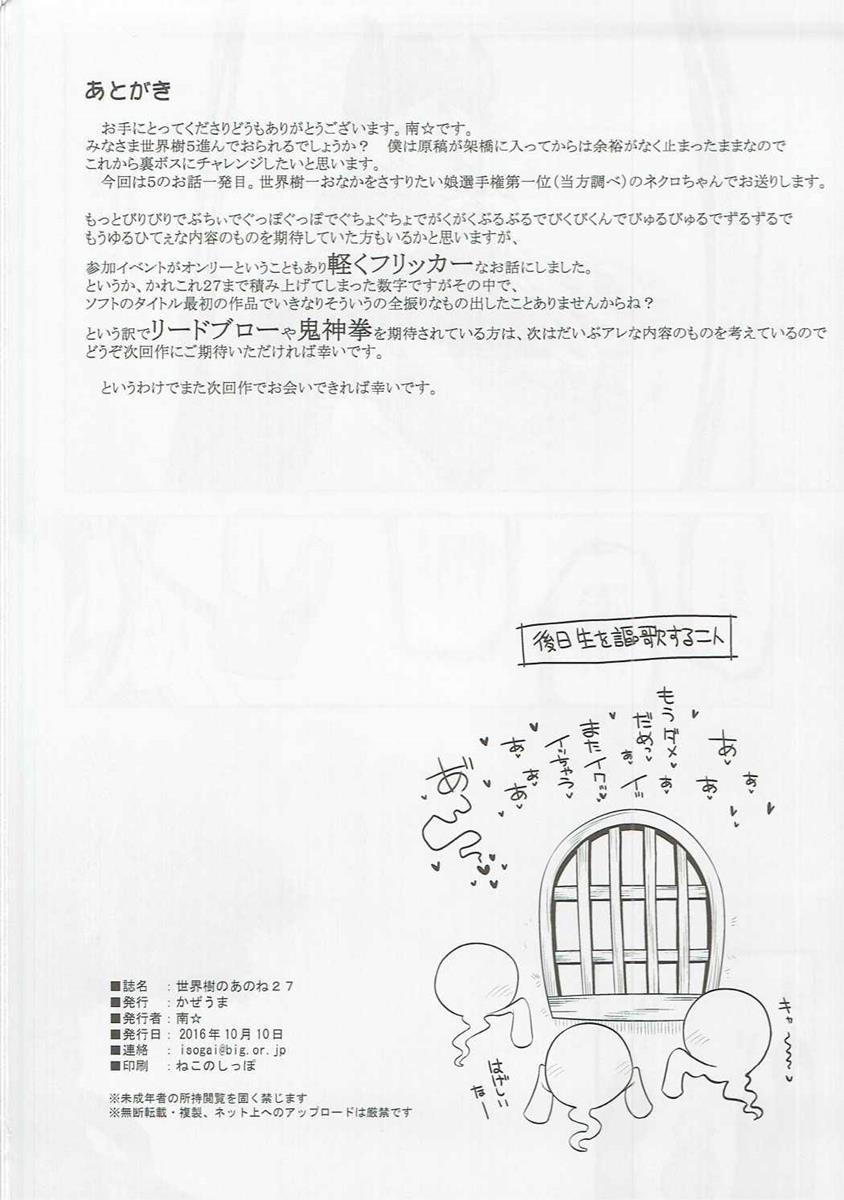 あとがき
　お手にとってくださりどうもありがとうございます。南☆です。
みなさま世界樹5進んでおられるでしょうか？　僕は原稿が架橋に入ってからは余裕がなく止まったままなので
これから裏ボスにチャレンジしたいと思います。
　今回は5のお話一発目。世界樹一おなかをさすりたい娘選手権第一位（当方調べ）のネクロちゃんでお送りします。
もっとびりびりでぶちぃでぐっぽぐっぽでぐちょぐちょでがくがくぶるぶるでびくびくんでびゅるびゅるでずるずるで
もうゆるひてぇな内容のものを期待していた方もいるかと思いますが、
参加イベントがオンリーということもあり軽くフリッカーなお話にしました。
というか、かれこれ27まで積み上げてしまった数字ですがその中で、
ソフトのタイトル最初の作品でいきなりそういうの全振りなもの出したことありませんからね？
という訳でリードブローや鬼神拳を期待されている方は、次はだいぶアレな内容のものを考えているので
どうぞ次回作にご期待いただければ幸いです。
　というわけでまた次回作でお会いできれば幸いです。
後日生を謳歌する二人
あ♥
あ♥
あ♥
もうダメ♥
あ♥
だめっ
あ♥
イ゛
またイクッ♥
イッちゃう♥
あ♥
あ♥
あ♥
あ゛
キャー♥
はげしい
なー
■誌名　：世界樹のあのね２７
■発行　：かぜうま
■発行者：南☆
■発行日：2016年10月10日
■連絡　：isogai@big.or.jp
■印刷　：ねこのしっぽ
※未成年者の所持閲覧を固く禁じます
※無断転載・複製、ネット上へのアップロードは厳禁です